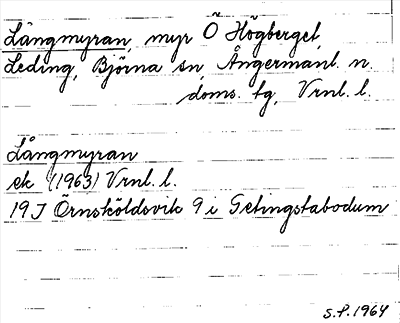 Långmyran, myr Ö Högberget,
Leding, Björna sn, Ångermanl. n.
doms. tg, Vrnl. l.
Långmyran
ek (1963) Vrnl. l.
19 J Örnsköldsvik 9 i Getingstabodum
S.P. 1964